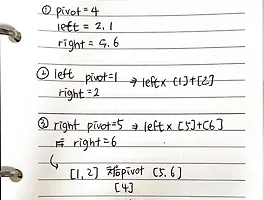 ① pivot=4
left = 2, 1
right = 5, 6
② left pivot=1 ⇒ left x [1]+[2]
right=2
③ right pivot=5 ⇒ left x [5]+[6]
right=6
[1,2] 최종pivot [5,6]
[4]